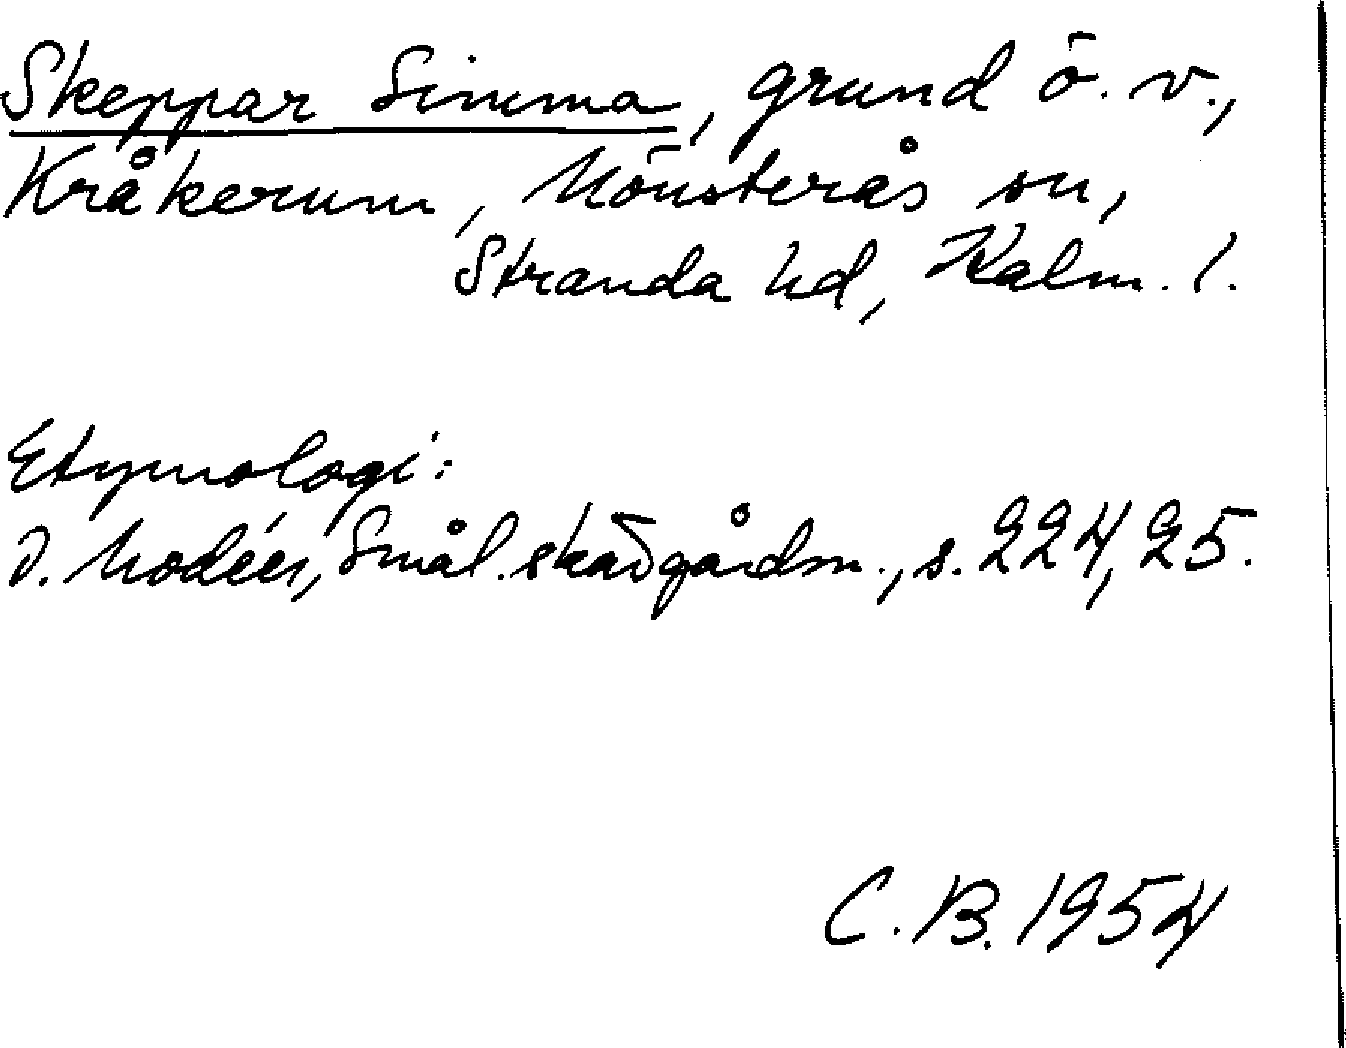 Skeppar Simma, grund ö. v.,
Kråkerum, Mönsterås sn,
Stranda hd, Kalm. l.
Etymologi:
I. Modéer, Smål. skärgårdsn., s. 224, 25.
C. B. 1954